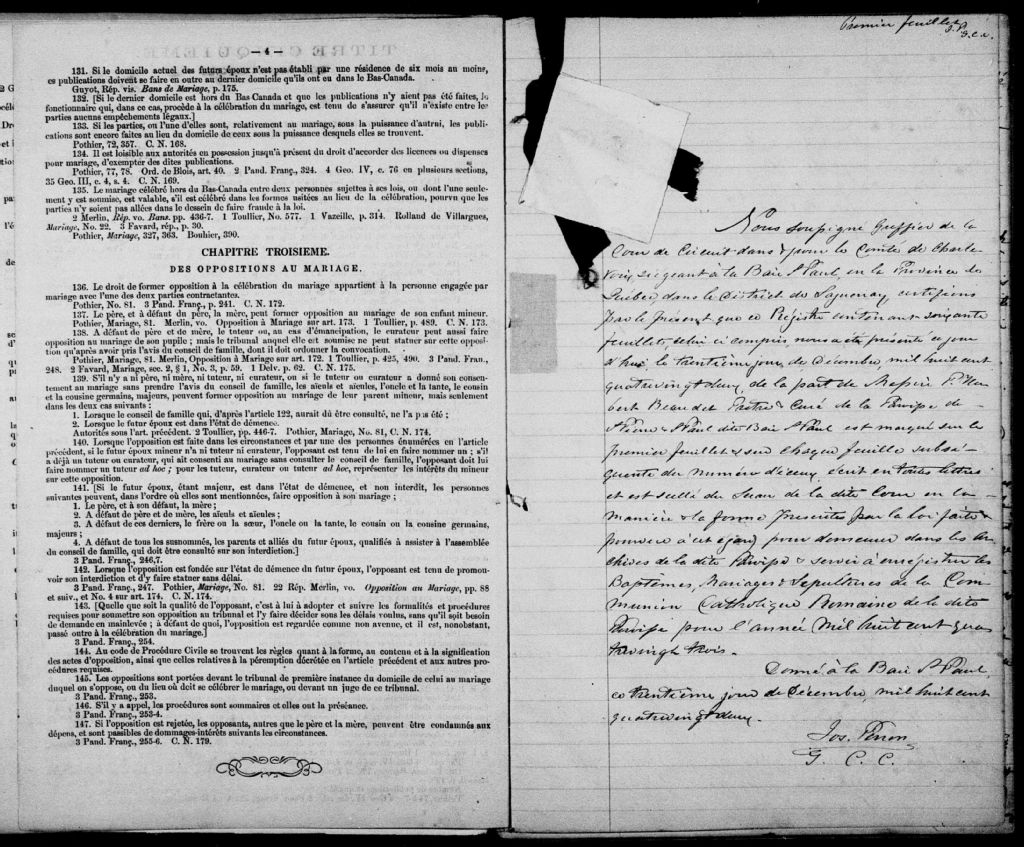 — 4 —
131. Si le domicile actuel des futurs époux n'est pas établi par une résidence de six mois au moins,
ces publications doivent se faire en outre au dernier domicile qu'ils ont eu dans le Bas-Canada.
Guyot, Rép. vis. Bans de Mariage, p. 175.
132. [Si le dernier domicile est hors du Bas-Canada et que les publications n'y aient pas été faites, le
fonctionnaire qui, dans ce cas, procède à la célébration du mariage, est tenu de s'assurer qu'il n'existe entre les
parties aucuns empêchements légaux.]
133. Si les parties, ou l'une d'elles sont, relativement au mariage, sous la puissance d'autrui, les publi-
cations sont encore faites au lieu du domicile de ceux sous la puissance desquels elles se trouvent.
Pothier, 72, 357. C. N. 168.
134. Il est loisible aux autorités en possession jusqu'à présent du droit d'accorder des licences ou dispenses
pour mariage, d'exempter des dites publications.
Pothier, 77, 78. Ord. de Blois, art. 40. 2 Pand. Franç., 324. 4 Geo. IV, c. 76 en plusieurs sections,
35 Geo. III, c. 4, s. 4. C. N. 169.
135. Le mariage célébré hors du Bas-Canada entre deux personnes sujettes à ses lois, ou dont l'une seule-
ment y est soumise, est valable, s'il est célébré dans les formes usitées au lieu de la célébration, pourvu que les
parties n'y soient pas allées dans le dessein de faire fraude à la loi.
2 Merlin, Rép. vo. Bans. pp. 436-7. 1 Toullier, No. 577. 1 Vazeille, p. 314. Rolland de Villargues,
Mariage, No. 22. 3 Favard, rép., p. 30.
Pothier, Mariage, 327, 363. Bouhier, 390.
CHAPITRE TROISIEME.
DES OPPOSITIONS AU MARIAGE.
136. Le droit de former opposition à la célébration du mariage appartient à la personne engagée par
mariage avec l'une des deux parties contractantes.
Pothier, No. 81. 3 Pand. Franç., p. 241. C. N. 172.
137. Le père, et à défaut du père, la mère, peut former opposition au mariage de son enfant mineur.
Pothier, Mariage, 81. Merlin, vo. Opposition à Mariage sur art. 173. 1 Toullier, p. 489. C. N. 173.
138. A défaut de père et de mère, le tuteur ou, au cas d'émancipation, le curateur peut aussi faire
opposition au mariage de son pupille ; mais le tribunal auquel elle est soumise ne peut statuer sur cette opposi-
tion qu'après avoir pris l'avis du conseil de famille, dont il doit ordonner la convocation.
Pothier, Mariage, 81. Merlin, Opposition à Mariage sur art. 172. 1 Toullier, p. 425, 490. 3 Pand. Fran.,
248. 2 Favard, Mariage, sec. 2, § 1, No. 3, p. 59. 1 Delv. p. 62. C. N. 175.
139. S'il n'y a ni père, ni mère, ni tuteur, ni curateur, ou si le tuteur ou curateur a donné son consen-
tement au mariage sans prendre l'avis du conseil de famille, les aïeuls et aïeules, l'oncle et la tante, le cousin
et la cousine germains, majeurs, peuvent former opposition au mariage de leur parent mineur, mais seulement
dans les deux cas suivants :
1. Lorsque le conseil de famille qui, d'après l'article 122, aurait dû être consulté, ne l'a pas été ;
2. Lorsque le futur époux est dans l'état de démence.
Autorités sous l'art. précédent. 2 Toullier, pp. 446-7. Pothier, Mariage, No. 81, C. N. 174.
140. Lorsque l'opposition est faite dans les circonstances et par une des personnes énumérées en l'article
précédent, si le futur époux mineur n'a ni tuteur ni curateur, l'opposant est tenu de lui en faire nommer un ; s'il
a déjà un tuteur ou curateur, qui ait consenti au mariage sans consulter le conseil de famille, l'opposant doit lui
faire nommer un tuteur ad hoc ; pour les tuteur, curateur ou tuteur ad hoc, représenter les intérêts du mineur
sur cette opposition.
141. [Si le futur époux, étant majeur, est dans l'état de démence, et non interdit, les personnes
suivantes peuvent, dans l'ordre où elles sont mentionnées, faire opposition à son mariage ;
1. Le père, et à son défaut, la mère ;
2. A défaut de père et de mère, les aïeuls et aïeules ;
3. A défaut de ces derniers, le frère ou la sœur, l'oncle ou la tante, le cousin ou la cousine germains,
majeurs ;
4. A défaut de tous les susnommés, les parents et alliés du futur époux, qualifiés à assister à l'assemblée
du conseil de famille, qui doit être consulté sur son interdiction.]
3 Pand. Franç., 246,7.
142. Lorsque l'opposition est fondée sur l'état de démence du futur époux, l'opposant est tenu de promou-
voir son interdiction et d'y faire statuer sans délai.
3 Pand. Franç., 247. Pothier, Mariage, No. 81. 22 Rép. Merlin, vo. Opposition au Mariage, pp. 88
et suiv., et No. 4 sur art. 174. C. N. 174.
143. [Quelle que soit la qualité de l'opposant, c'est à lui à adopter et suivre les formalités et procédures
requises pour soumettre son opposition au tribunal et l'y faire décider sous les délais voulus, sans qu'il soit besoin
de demande en mainlevée ; à défaut de quoi, l'opposition est regardée comme non avenue, et il est, nonobstant,
passé outre à la célébration du mariage.]
3 Pand. Franç., 254.
144. Au code de Procédure Civile se trouvent les règles quant à la forme, au contenu et à la signification
des actes d'opposition, ainsi que celles relatives à la péremption décrétée en l'article précédent et aux autres pro-
cédures requises.
145. Les oppositions sont portées devant le tribunal de première instance du domicile de celui au mariage
duquel on s'oppose, ou du lieu où doit se célébrer le mariage, ou devant un juge de ce tribunal.
3 Pand. Franç., 253.
146. S'il y a appel, les procédures sont sommaires et elles ont la préséance.
3 Pand. Franç., 253-4.
147. Si l'opposition est rejetée, les opposants, autres que le père et la mère, peuvent être condamnés aux
dépens, et sont passibles de dommages-intérêts suivants les circonstances.
3 Pand. Franç., 255-6. C. N. 179.
Premier feuillet
J. P.
G.C.C.
Nous soussigné Greffier de la
Cour de Circuit dans & pour le Comté de Charle-
voix, siégeant à la Baie St Paul, en la Province de
Québec, dans le District de Saguenay, certifions
par le présent que ce Régistre contenant soixante
feuillets celui ci compris nous a été présenté ce jour
d'hui le trentième jour de Décembre, mil huit cent
quatrevingt deux, de la part de Messire P. Hu-
bert Beaudet Prêtre & Curé de la Paroisse de
St Pierre & St Paul dite Baie St Paul est marqué sur le
premier feuillet & sur chaque feuille subsé-
quente du numéro d'iceux écrit en toutes lettres
et est scellé du Sceau de la dite Cour en la
manière & la forme prescrites par la loi faite &
pourvue à cet égard pour demeurer dans les Ar-
chives de la dite Paroisse & servir à enrégistrer les
Baptêmes, Mariages & Sépultures de la Com-
munion Catholique Romaine de la dite
Paroisse pour l'année Mil huit cent qua-
trevingt trois.
Donné à la Baie St Paul,
ce trentième jour de Décembre, mil huit cent
quatrevingt deux.
Jos. Perron
G. C. C.